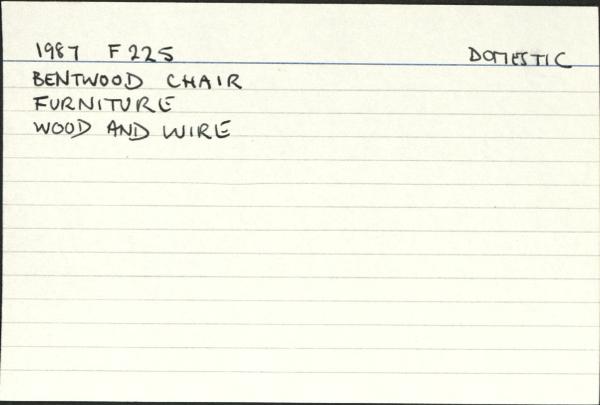 1987 F225 DOMESTIC
BENTWOOD CHAIR
FURNITURE
WOOD AND WIRE